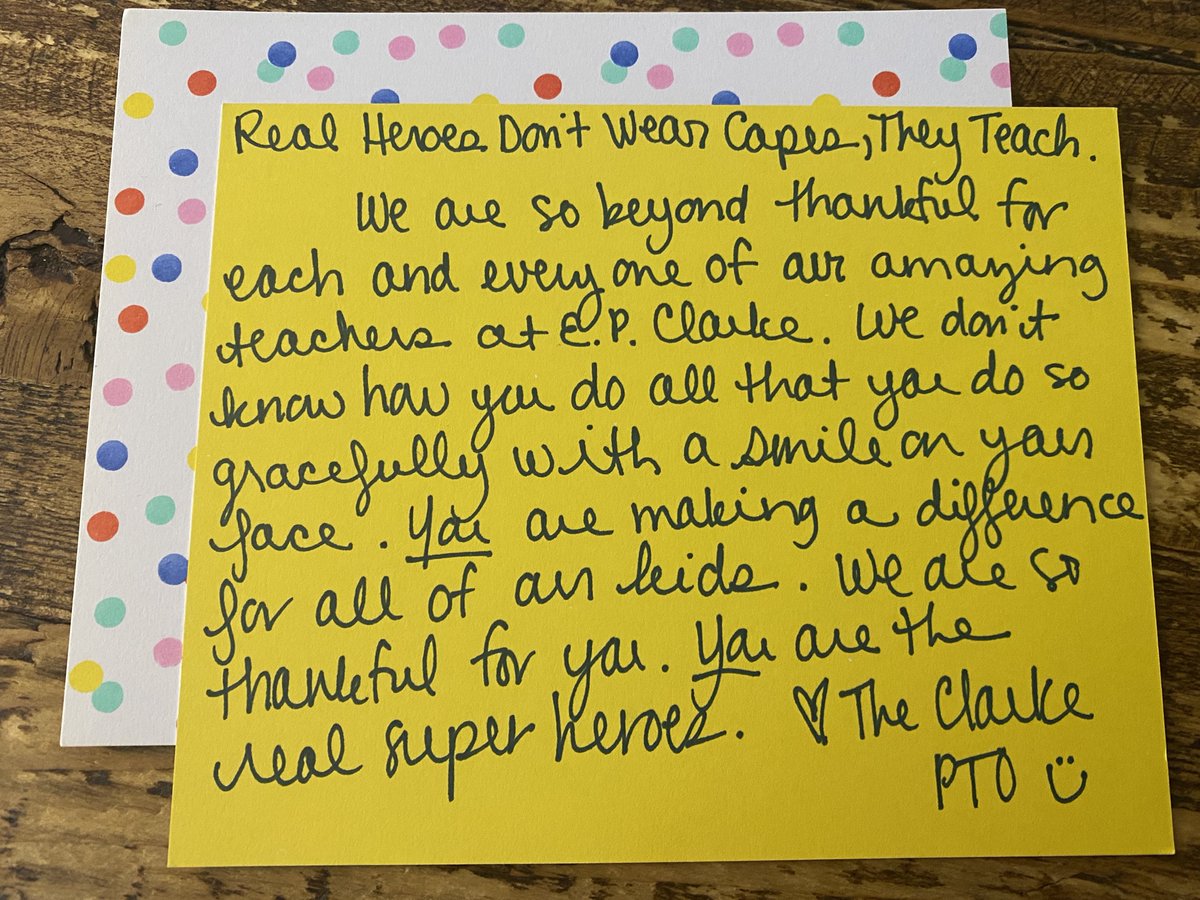 Real Heroes Don't Wear Capes, They Teach.
We are so beyond thankful for
each and every one of our amazing
teachers at E.P. Clarke. We don't
know how you do all that you do so
gracefully with a smile on your
face. You are making a difference
for all of our kids. We are so
thankful for you. You are the
real super heroes. ♡ The Clarke
PTO ☺